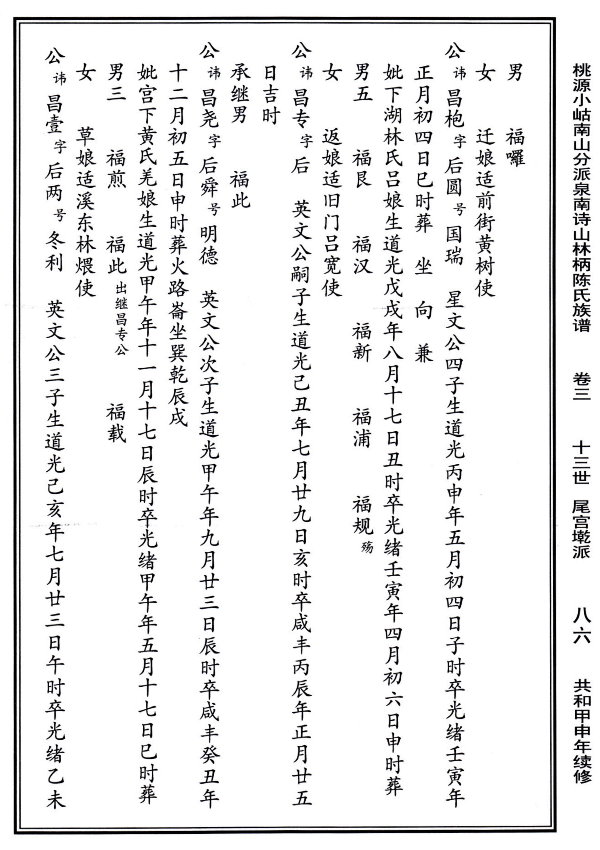 桃源小岵南山分派泉南诗山林柄陈氏族谱　卷三　十三世　尾宫墘派　八六　共和甲申年续修
男　福囉
女　迁娘适前街黄树使
公讳昌枹字后圆号国瑞　星文公四子生道光丙申年五月初四日子时卒光绪壬寅年
正月初四日巳时葬　坐　向　兼
妣下湖林氏吕娘生道光戊戌年八月十七日丑时卒光绪壬寅年四月初六日申时葬
男五　福艮　福汉　福新　福浦　福规殇
女　返娘适旧门吕宽使
公讳昌专字后　英文公嗣子生道光己丑年七月廿九日亥时卒咸丰丙辰年正月廿五
日吉时
承继男　福此
公讳昌尧字后舜号明德　英文公次子生道光甲午年九月廿三日辰时卒咸丰癸丑年
十二月初五日申时葬火路崙坐巽乾辰戌
妣宫下黄氏羌娘生道光甲午年十一月十七日辰时卒光绪甲午年五月十七日巳时葬
男三　福煎　福此出继昌专公　福载
女　草娘适溪东林煨使
公讳昌壹字后两号冬利　英文公三子生道光己亥年七月廿三日午时卒光绪乙未